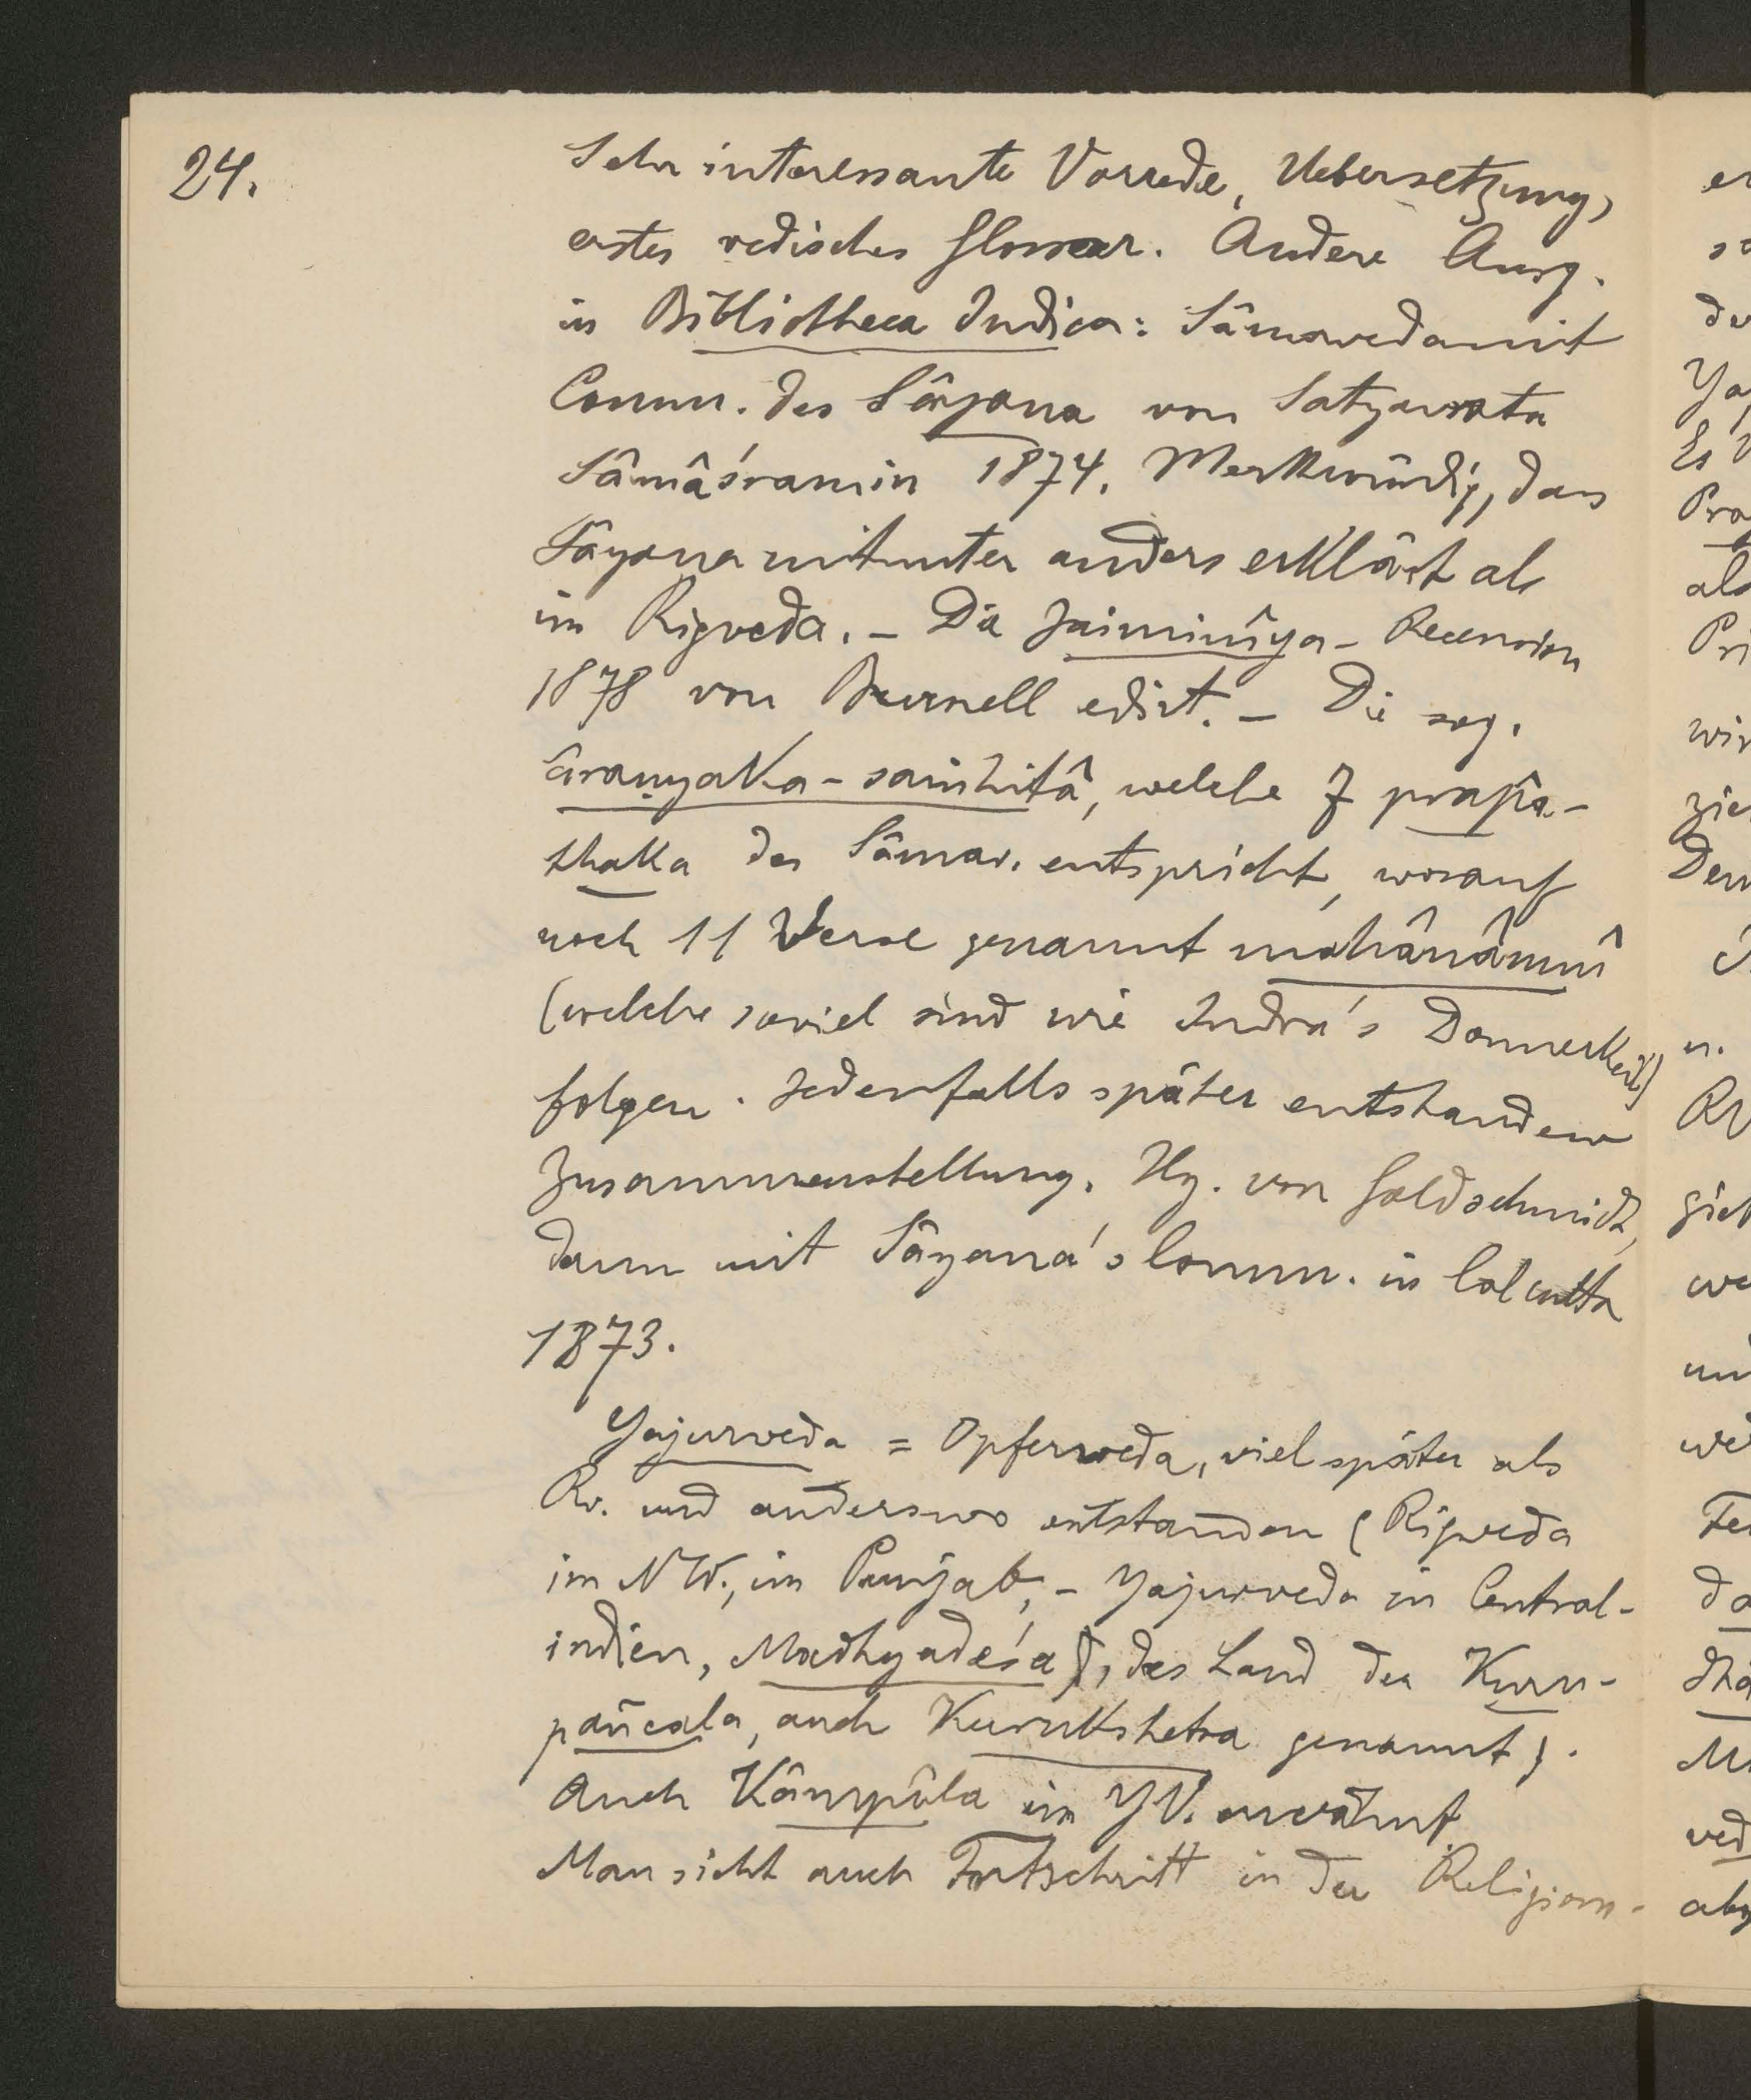 24.
Sehr interessante Vorrede, Uebersetzung,
erstes vedisches Glossar. Andere Ausg.
in Bibliotheca Indica: Sâmaveda mit
Comm. des Sâyana von Satyavrata
Sâmâśramin 1874. Merkwürdig, dass
Sâyana mitunter anders erklärt als
im Rigveda. – Die Jaiminîya-Recension
1878 von Burnell edirt. – Die sog.
âraṇyaka-saṁhitâ, welche 7 prapâ-
thaka des Sâmav. entspricht, worauf
noch 11 Verse genannt mahânâmnî
(welche soviel sind wie Indra's Donnerkeil)
folgen. Jedenfalls später entstandene
Zusammenstellung. Hg. von Goldschmidt,
dann mit Sâyana's Comm. in Calcutta
1873.
Yajurveda = Opferveda, viel später als
Rv. und anderswo entstanden (Rigveda
im NW., im Punjab, – Yajurveda in Central-
indien, Madhyadeśa, das Land der Kuru-
pañcala, auch Kurukshetra genannt).
Auch Kâmpîla im YV. erwähnt
Man sieht auch Fortschritt in der Religion-